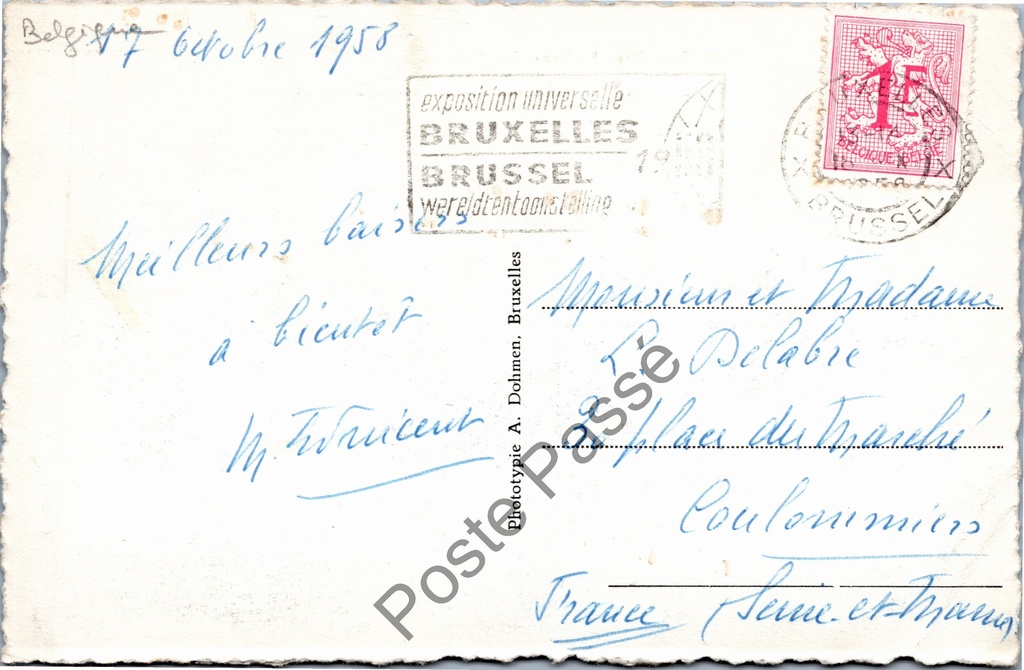 Belgique
17 Octobre 1958
exposition universelle
BRUXELLES
BRUSSEL
wereldtentoonstelling
19
1F
BELGIQUE-BELGIE
BRUSSEL
Meilleurs baisers
à bientôt
Phototypie A. Dohmen, Bruxelles
Monsieur et Madame
L. Delabre
place du Marché
Coulommiers
France (Seine-et-Marne)
Poste Passé